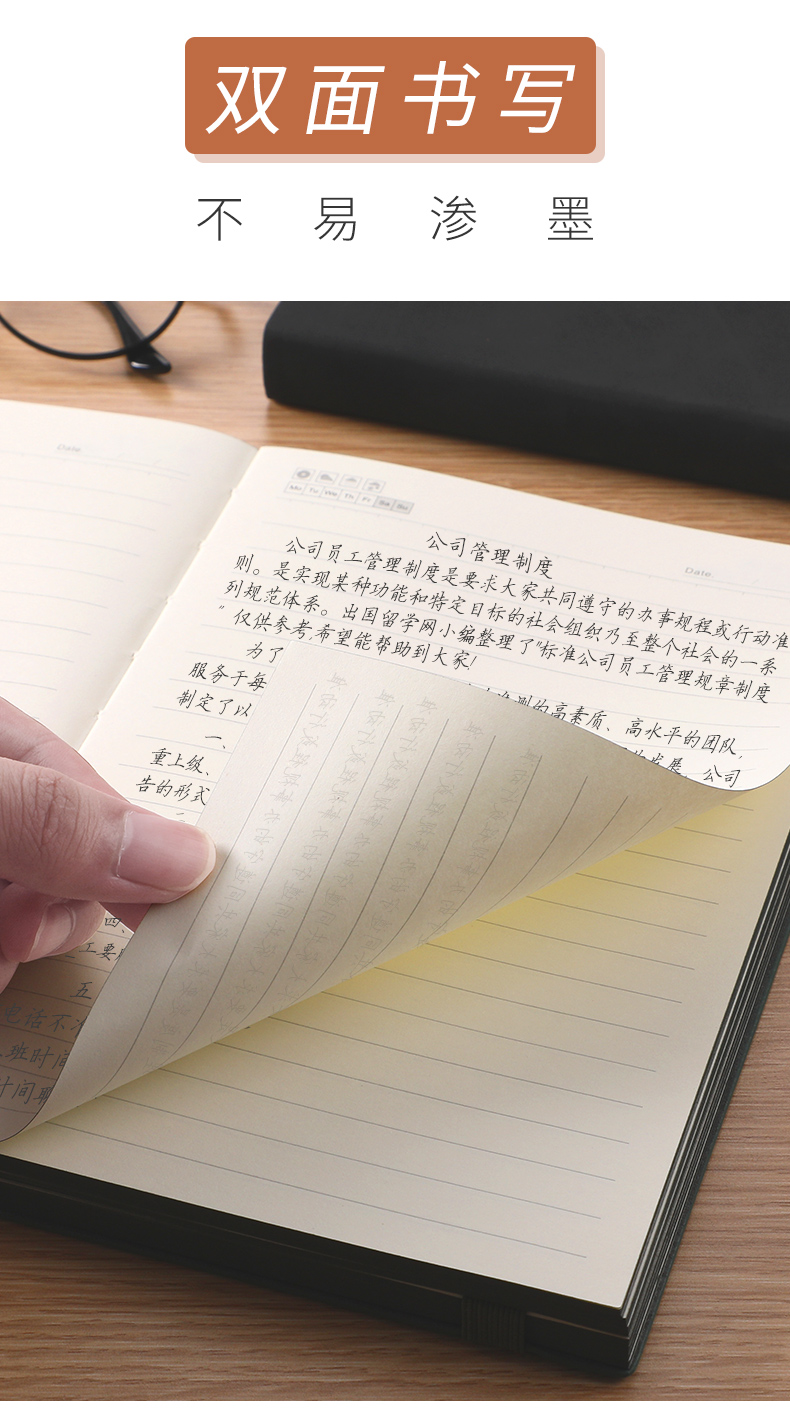 双面书写
不易渗墨
Date
Mo Tu We Th Fr Sa Su
Date
公司管理制度
公司员工管理制度是要求大家共同遵守的办事规程或行动准
则。是实现某种功能和特定目标的社会组织乃至整个社会的一系
列规范体系。出国留学网小编整理了"标准公司员工管理规章制度
"仅供参考,希望能帮助到大家!
为了
服务于每
的高素质、高水平的团队,
制定了以
发展,公司
一、
重上级、
告的形式
四、
工要
五
电话不
班时间
时间